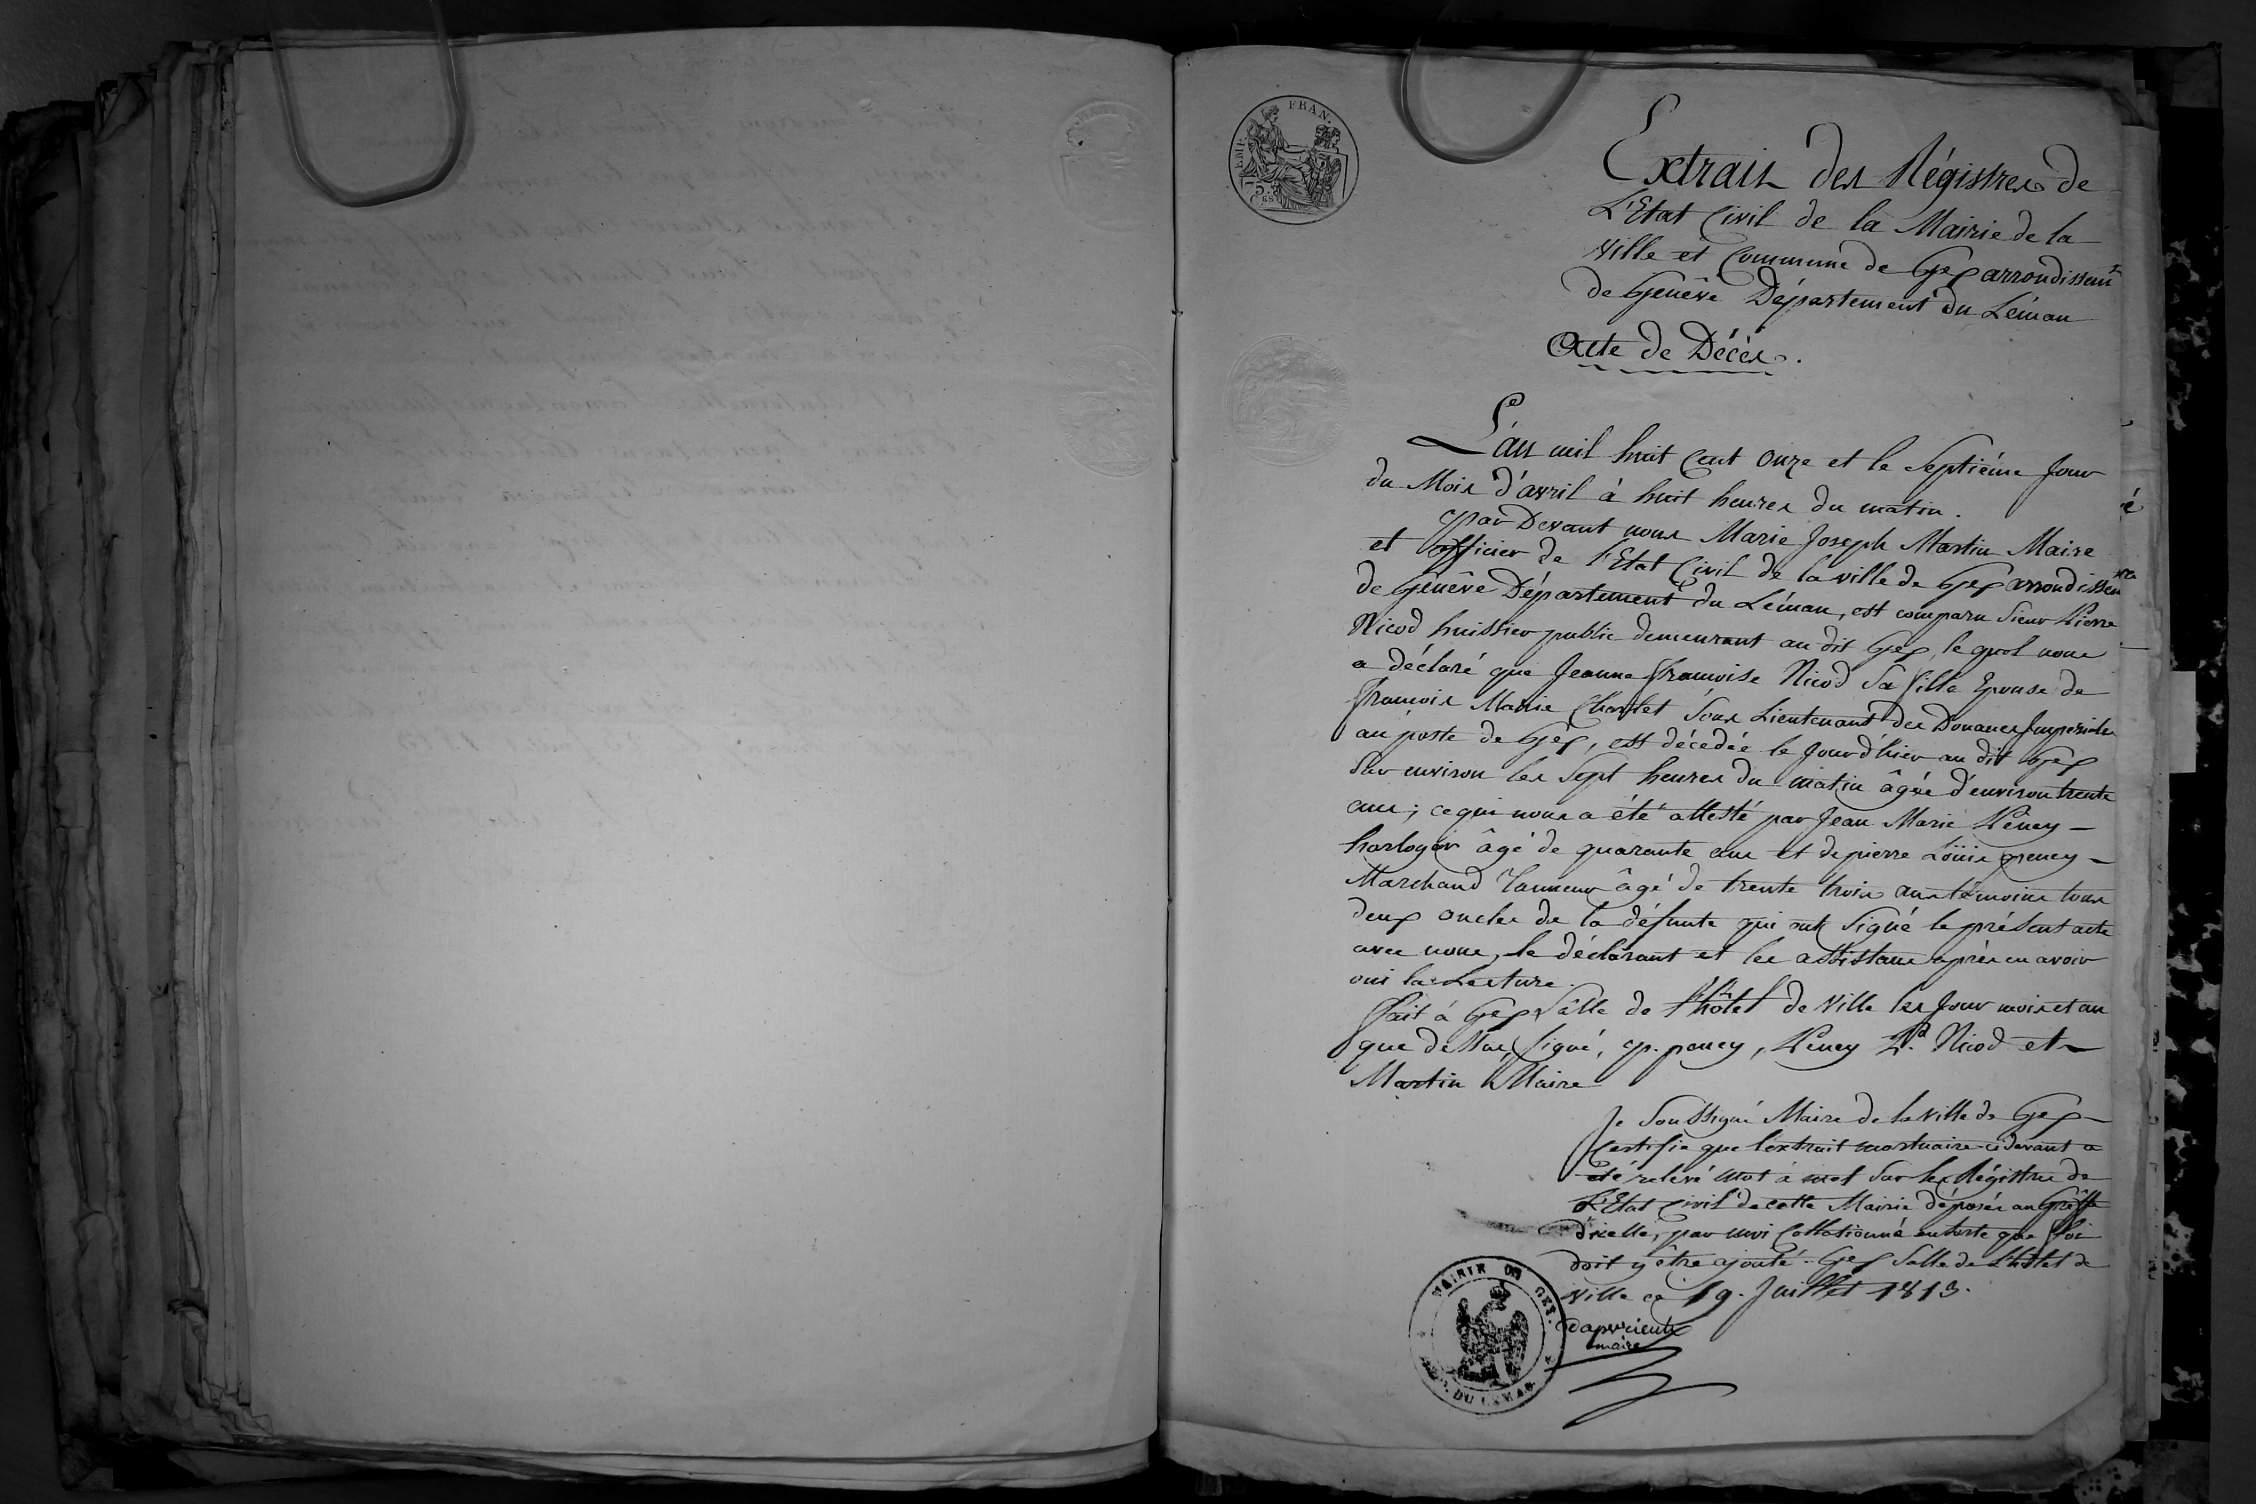 EMP. FRAN.
75
Extrait des Régistres de
L'Etat Civil de la Mairie de la
Ville et Commune de Gex arrondissemt
de Genêve Département du Léman
Acte de Décès.
L'an mil huit Cent onze et le Septiéme Jour
du Mois d'avril à huit heures du matin.
par Devant nous Marie Joseph Martin Maire
et officier de l'Etat Civil de la ville de Gex arrondissem
de Genêve Département du Léman, est comparu Sieur Pierre
Nicod huissier public demeurant au dit Gex, le quel nous
a déclaré que Jeanne françoise Nicod Sa fille Epouse de
françois Marie Charlet Sous Lieutenant des Douanes Imperiales
au poste de Gex, est décédée le Jour d'hier au dit Gex
Sur environ les Sept heures du matin âgée d'environ trente
ans; ce qui nous a été attesté par Jean Marie Péney
horloger âgé de quarante ans et de pierre Loüis peney
Marchand Tanneur âgé de trente trois ans témoins tous
deux oncles de la défunte qui ont Signé le présent acte
avec nous, le déclarant et les assistans après en avoir
oui la Lecture.
fait à Gex Salle de l'hôtel de Ville les Jour mois et an
que dessus Signé, p. peney, Péney Nicod et
Martin Maire
Je Soussigné Maire de la Ville de Gex
Certifie que l'extrait mortuaire cidevant a
été relevé mot à mot Sur les Régistres de
L'Etat Civil de cette Mairie déposés au Greffe
d'icelle, par moi Collationné ensorte que foi
doit y être ajouté. Gex Salle de L'hôtel de
Ville ce 19. Juillet 1813.
maire
MAIRIE DE GEX.
DU LEMAN